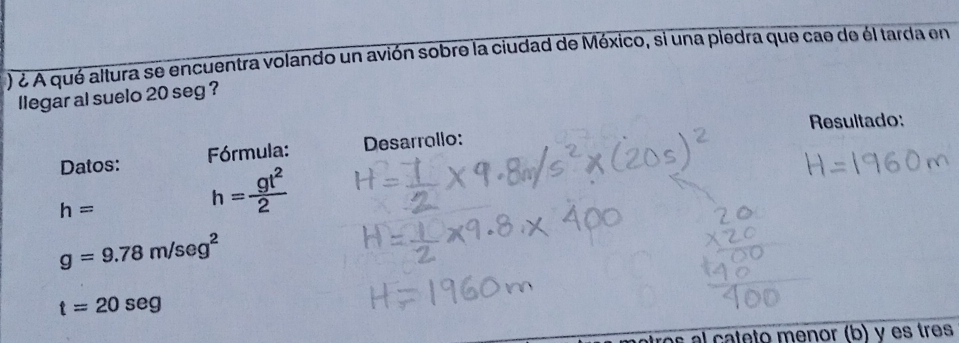 ) ¿ A qué altura se encuentra volando un avión sobre la ciudad de México, si una piedra que cae de él tarda en
llegar al suelo 20 seg ?
Datos:
h =
g = 9.78 m/seg²
t = 20 seg
Fórmula:
h = gt²/2
Desarrollo:
H = 1/2 × 9.8m/s² × (20s)²
H = 1/2 × 9.8 × 400
H = 1960m
20
×20
00
+40
400
Resultado:
H = 1960m
al cateto menor (b) y es tres